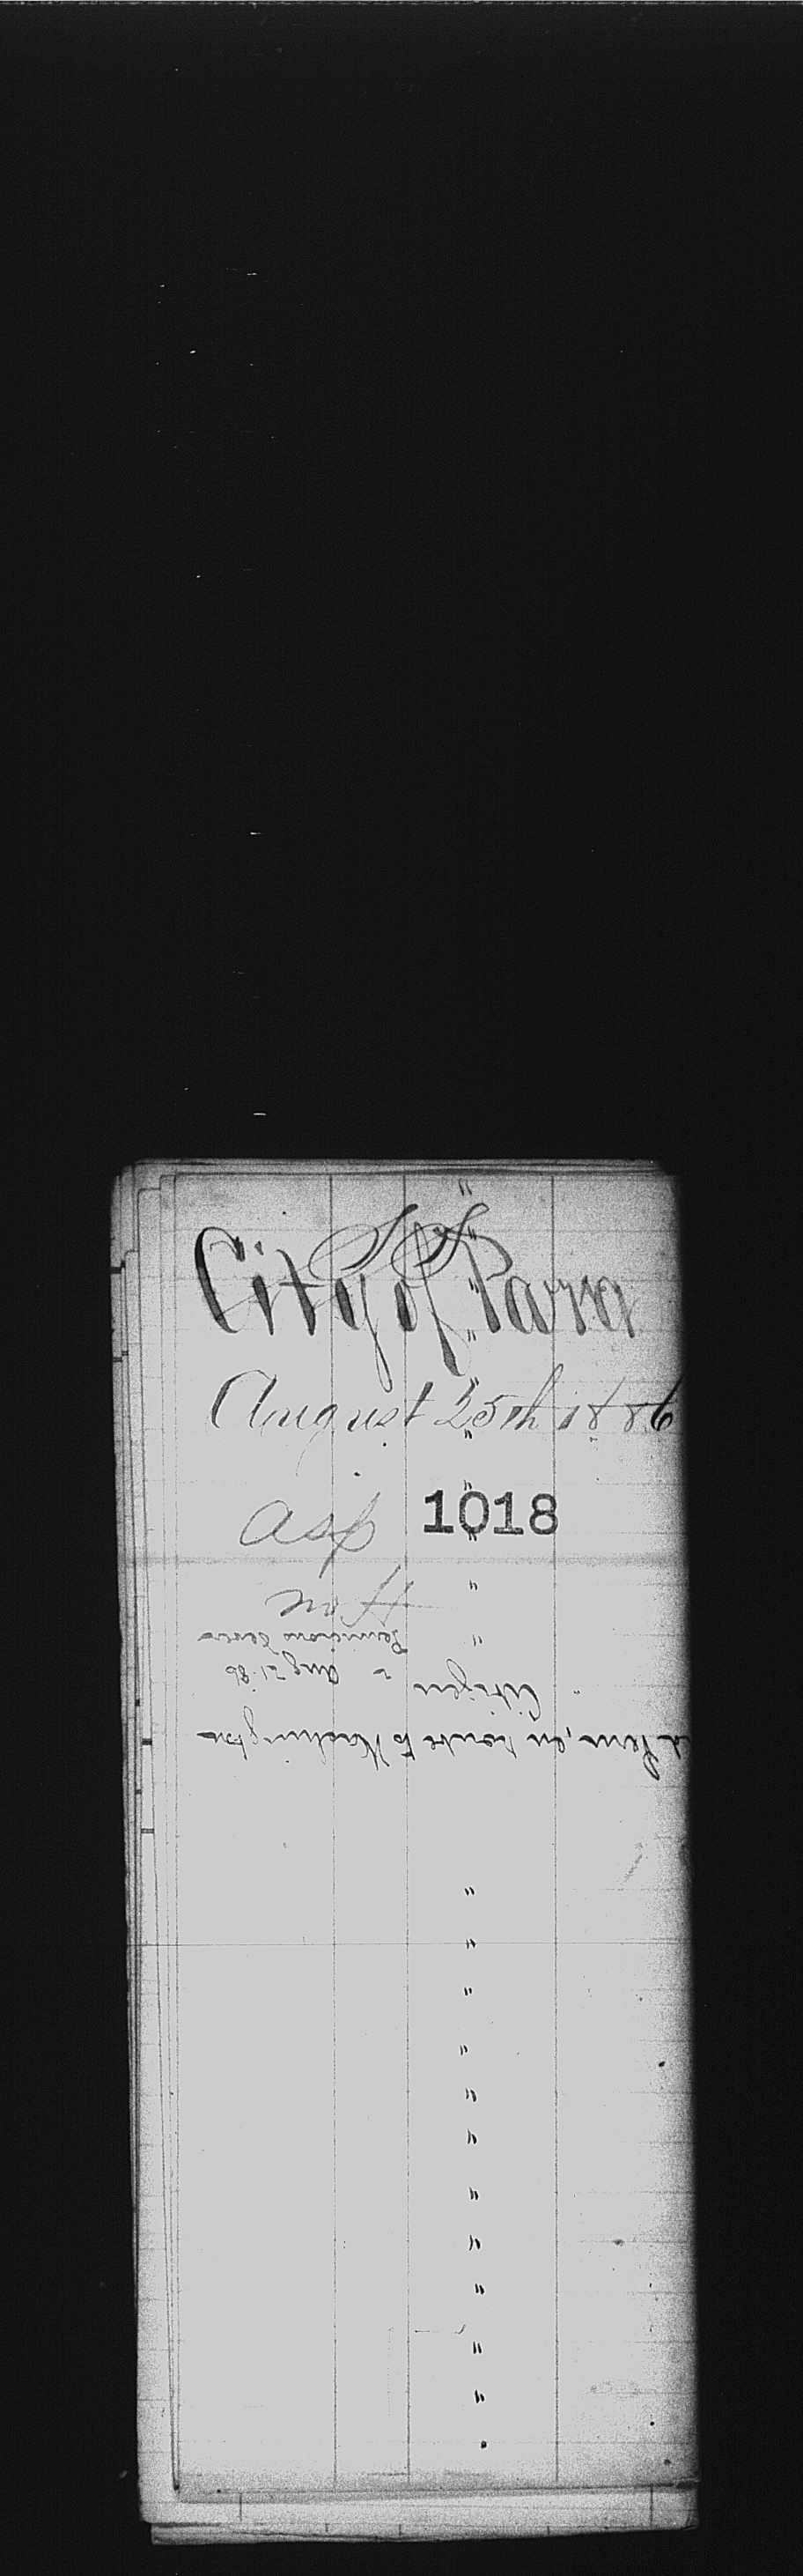 SS
City of Para
August 25th 1886
asp 1018
"
"
Citizen " Aug 21. 86
en route to Washington
"
"
"
"
"
"
"
"
"
"
"